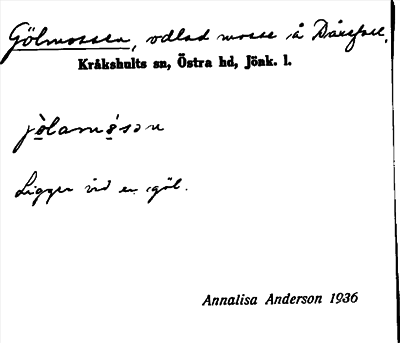 Gölmossen, odlad mosse å Dårefall.
Kråkshults sn, Östra hd, Jönk. l.
jòlamósən
Ligger vid en göl.
Annalisa Anderson 1936